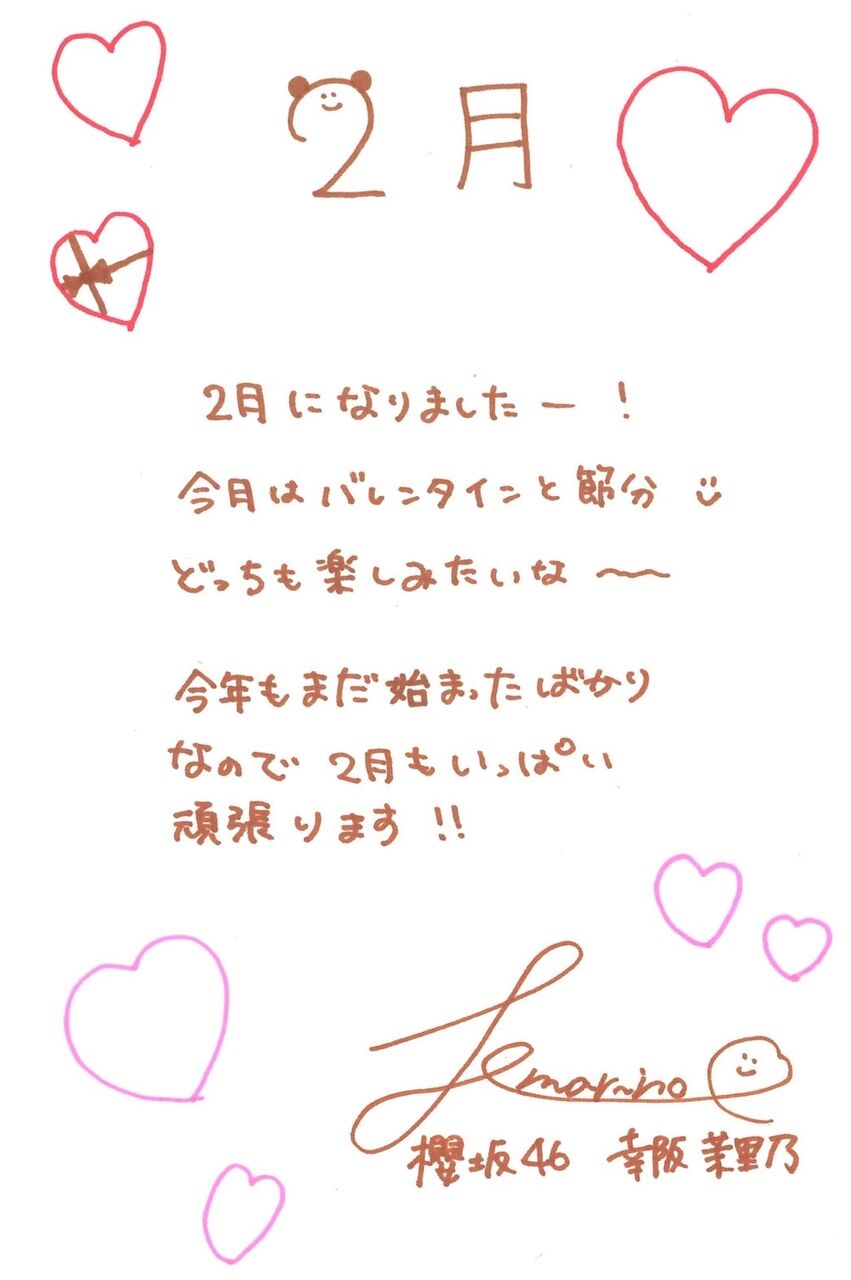 2月
2月になりましたー！
今月はバレンタインと節分
どっちも楽しみたいな〜
今年もまだ始まったばかり
なので 2月もいっぱい
頑張ります!!
marino
櫻坂46 幸阪茉里乃